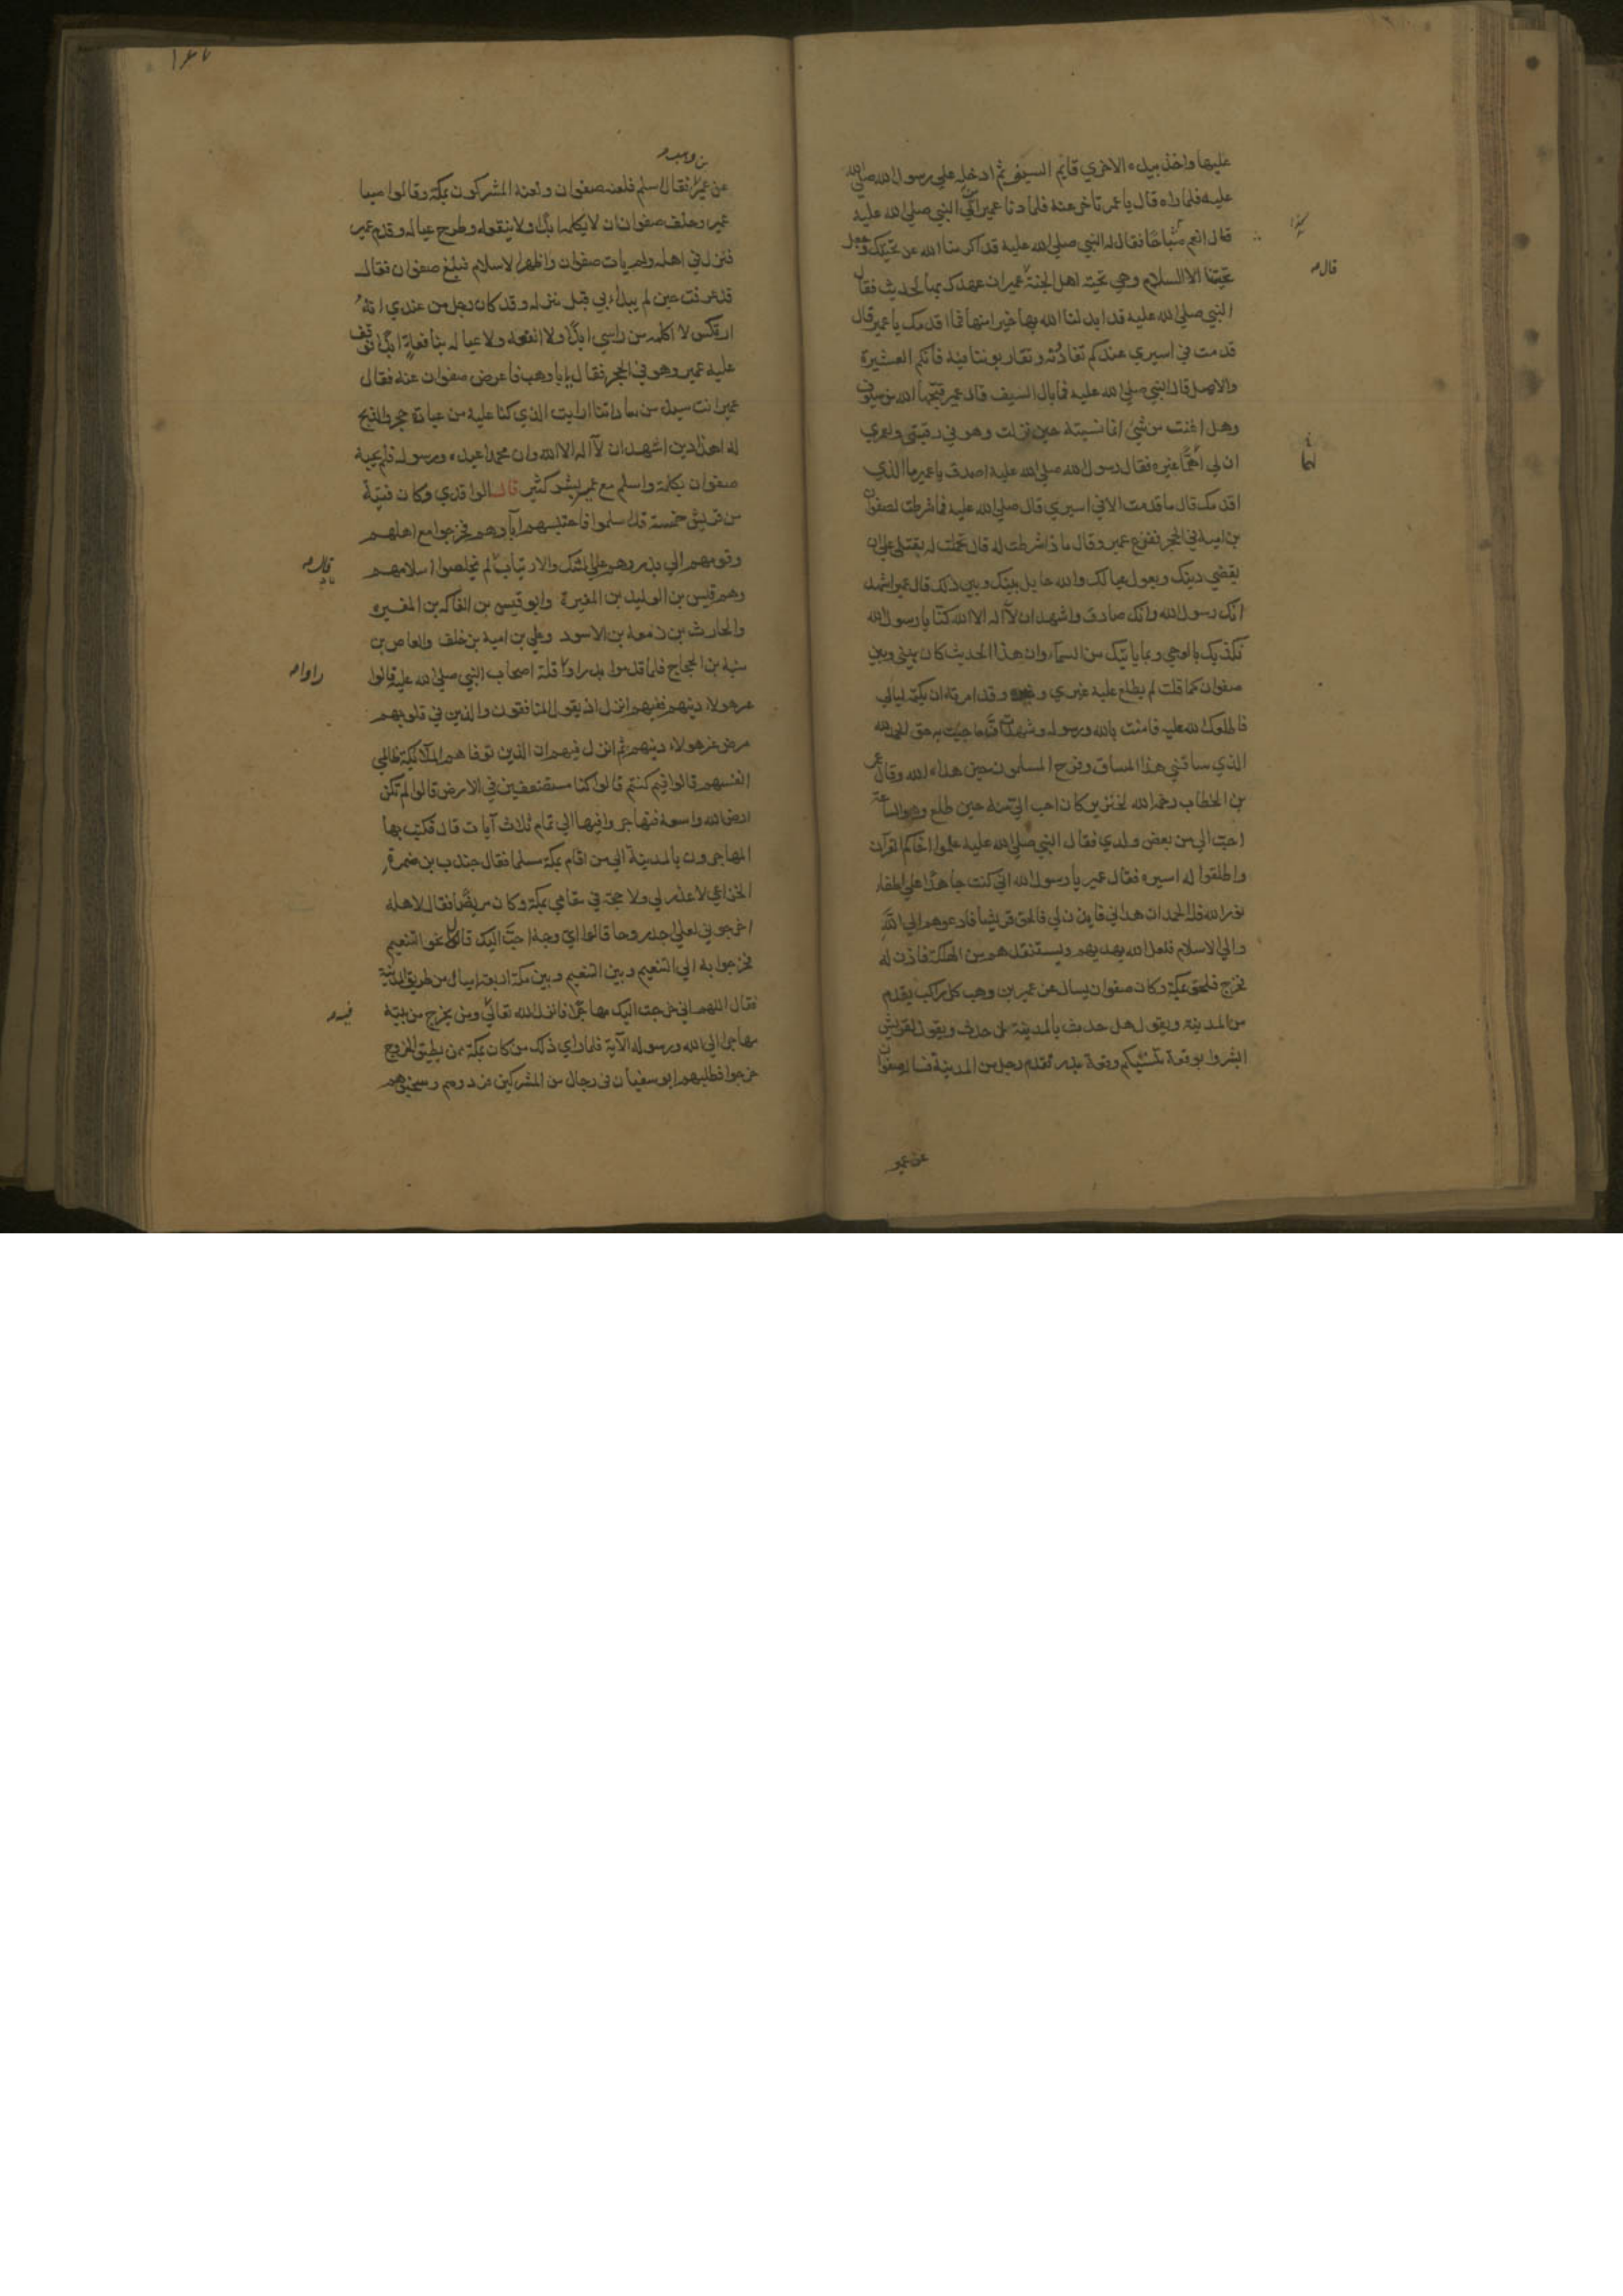 عليها واخذ بيده الاخري قايم السيف ثم ادخله علي رسول الله صلي الله
عليه فلما راه قال يا عمر تاخر عنه فلما دنا عمير الي النبي صلي الله عليه
قال انعم صباحا فقال له النبي صلي الله عليه قد اكرمنا الله عن تحيتك وجعل
تحيتنا الاالسلام وهي تحية اهل الجنة عمير ان عهدك بها لحديث فقال
النبي صلي الله عليه قد ابدلنا الله بها خيرا منها فما اقدمك يا عمير قال
قدمت في اسيري عندكم تفادونه وتقاربوننا فيه فانكم العشيرة
والاصل قال النبي صلي الله عليه فما بال السيف قال عمير قبحها الله من سيوف
وهل اغنت من شئ انما نسيته حين نزلت وهو في رقبتي ولعمري
ان لي لهما غيره فقال رسول الله صلي الله عليه اصدق يا عمير ما الذي
اقدمك قال ما قدمت الا في اسيري قال صلي الله عليه فما شرطت لصفوان
بن امية في الحجر ففزع عمير وقال ماذا شرطت له قال تحملت له بقتلي علي ان
يقضي دينك ويعول عيالك والله حايل بينك وبين ذلك قال عمير اشهد
انك رسول الله وانك صادق واشهد ان لا اله الا الله كنا يا رسول الله
نكذبك بالوحي وبما ياتيك من السماء وان هذا الحديث كان بيني وبين
صفوان كما قلت لم يطلع عليه غيري وغيره وقد امرته ان يكتمه ليالي
فاطلعك الله عليه فامنت بالله ورسوله وشهدت ان ما جيت به حق الحمد لله
الذي ساقني هذا المساق وفرح المسلمون حين هداه الله وقال عمر
بن الخطاب رحمه الله لخنزير كان احب الي منه حين طلع وهو الساعة
احب الي من بعض ولدي فقال النبي صلي الله عليه علموا اخاكم القرآن
واطلقوا له اسيره فقال عمير يا رسول الله اني كنت جاهدا علي اطفاء
نور الله فله الحمد ان هداني فايذن لي فالحق قريشا فادعوهم الي الله
والي الاسلام فلعل الله يهديهم ويستنقذهم من الهلكة فاذن له
فخرج فلحق بمكة وكان صفوان يسال عن عمير بن وهب كل راكب يقدم
من المدينة ويقول هل حدث بالمدينة من حدث ويقول لقريش
ابشروا بوقعة تنسيكم وقعة بدر فقدم رجل من المدينة فساله صفوان
عن عمير
قال
لهما
١٤٧
بن وهب
عن عمير فقال اسلم فلعنه صفوان ولعنه المشركون بمكة وقالوا صبا
عمير وحلف صفوان ان لا يكلمه ابدا ولا ينفعه وطرح عياله وقدم عمير
فنزل في اهله ولم يات صفوان واظهر الاسلام فبلغ صفوان فقال
قد عرفت حين لم يبدا بي قبل منزله وقد كان رجل من عندي انه
ارتكس لا اكلمه من راسي ابدا ولا انفعه ولا عياله بنافعة ابدا فوقف
عليه عمير وهو في الحجر فقال يا ابا وهب فاعرض صفوان عنه فقال
عمير انت سيد من ساداتنا ارايت الذي كنا عليه من عبادة حجر والذبح
له اهذا دين اشهد ان لا اله الا الله وان محمدا عبده ورسوله فلم يجبه
صفوان بكلمة واسلم مع عمير بشر كثير قال الواقدي وكان فتية
من قريش خمسة قد اسلموا فاحتبسهم آباؤهم فخرجوا مع اهلهم
وقومهم الي بدر وهم علي الشك والارتياب لم يخلصوا اسلامهم
وهم قيس بن الوليد بن المغيرة وابو قيس بن الفاكه بن المغيرة
والحارث بن زمعة بن الاسود وعلي بن امية بن خلف والعاص بن
منبه بن الحجاج فلما قدموا بدرا وراوا قلة اصحاب النبي صلي الله عليه قالوا
غر هولاء دينهم ففيهم انزل اذ يقول المنافقون والذين في قلوبهم
مرض غر هولاء دينهم ثم انزل فيهم ان الذين توفاهم الملائكة ظالمي
انفسهم قالوا فيم كنتم قالوا كنا مستضعفين في الارض قالوا الم تكن
ارض الله واسعة فتهاجروا فيها الي تمام ثلاث آيات قال فكتب بها
المهاجرون بالمدينة الي من اقام بمكة مسلما فقال جندب بن ضمرة
الخزاعي لا عذر لي ولا حجة في مقامي بمكة وكان مريضا فقال لاهله
اخرجوني لعلي اجد روحا قالوا اي وجه احب اليك قال نحو التنعيم
فخرجوا به الي التنعيم وبين التنعيم وبين مكة اربعة اميال من طريق المدينة
فقال اللهم اني خرجت اليك مهاجرا فانزل الله تعالي ومن يخرج من بيته
مهاجرا الي الله ورسوله الآية فلما راي ذلك من كان بمكة ممن يطيق الخروج
خرجوا فطلبهم ابو سفيان في رجال من المشركين فردوهم وسجنوهم
راوا
فيه